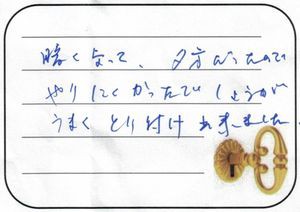 暗くなって、夕方だったので
やりにくかったでしょうが
うまくとり付け出来ました